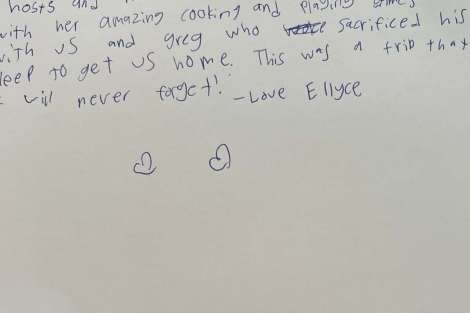 hosts and
with her amazing cooking and playing games
with us and greg who sacrificed his
sleep to get us home. This was a trip that
I will never forget! -Love Ellyce